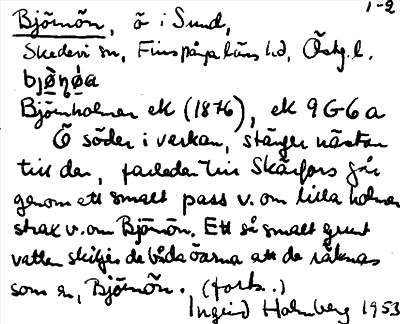 1-2
Björnön, ö i Sund,
Skedevi sn, Finspånga läns hd, Östg.l.
bjø̀ṇø̀a
Björnholmen ek (1876), ek 9G6a
Ö söder i verkan, stänger nästan
till den, farleden till Skärfors går
genom ett smalt pass v. om lilla holmen
strax v. om Björnön. Ett så smalt grunt
vatten skiljer de båda öarna att de räknas
som en, Björnön. (forts.)
Ingrid Holmberg 1953